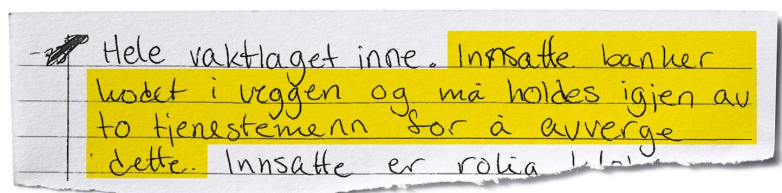 Hele vaktlaget inne. Innsatte banker
hodet i veggen og må holdes igjen av
to tjenestemenn for å avverge
dette. Innsatte er rolig